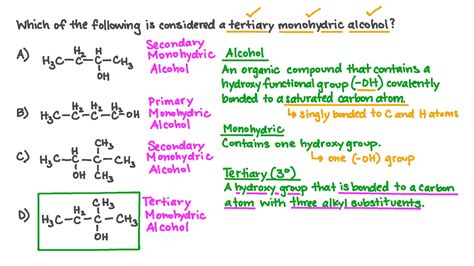 Which of the following is considered a tertiary monohydric alcohol?
A) H₃C–C–C–CH₃
H₂ H
OH
Secondary
Monohydric
Alcohol
B) H₃C–C–C–C–OH
H₂ H₂ H₂
Primary
Monohydric
Alcohol
C) H₃C–C–C–CH₃
H CH₃
OH CH₃
Secondary
Monohydric
Alcohol
D) H₃C–C–C–CH₃
H₂ CH₃
OH
Tertiary
Monohydric
Alcohol
Alcohol
An organic compound that contains a
hydroxy functional group (–OH) covalently
bonded to a saturated carbon atom.
↳ singly bonded to C and H atoms
Monohydric
Contains one hydroxy group.
↳ one (–OH) group
Tertiary (3°)
A hydroxy group that is bonded to a carbon
atom with three alkyl substituents.